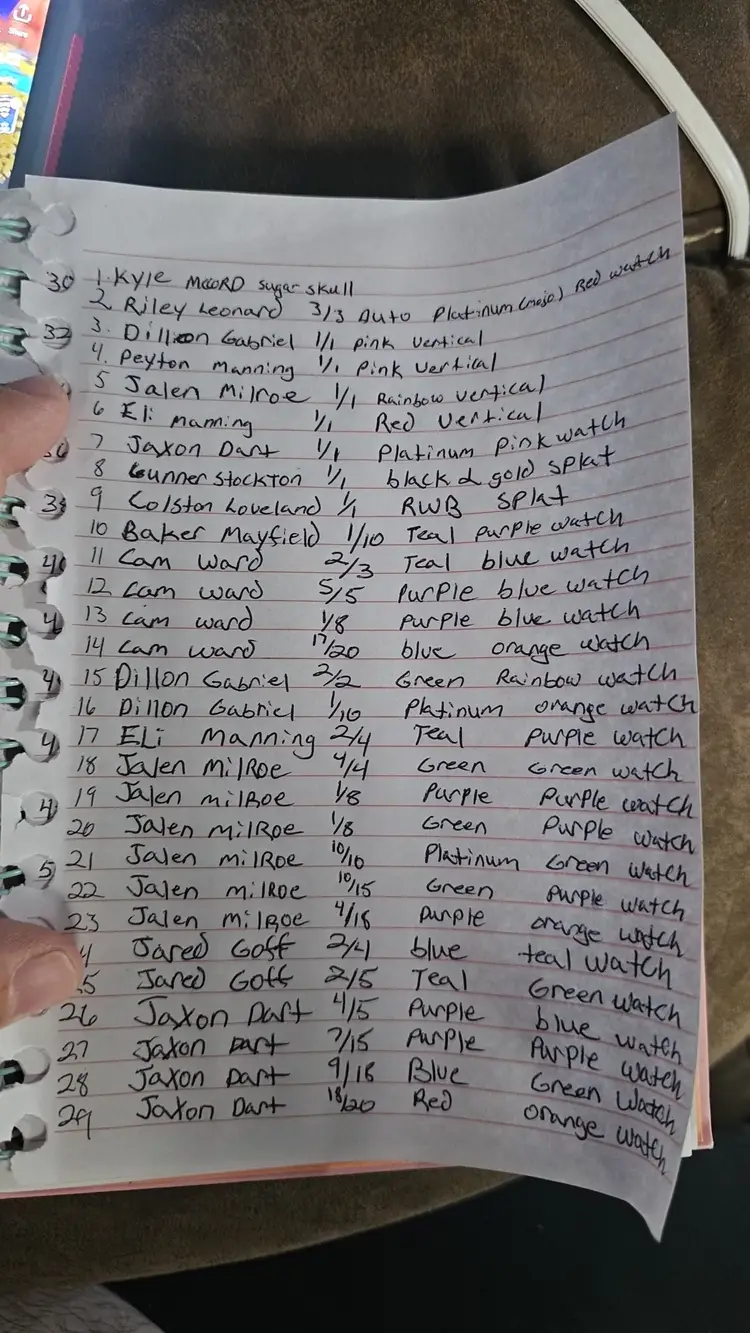 Share
30
32
36
38
40
4
4
4
4
5
1. Kyle McCORD sugar skull
2. Riley Leonard 3/3 Auto Platinum (mojo) Red watch
3. Dillion Gabriel 1/1 pink vertical
4. Peyton Manning 1/1 Pink Vertical
5 Jalen Milroe 1/1 Rainbow vertical
6 Eli Manning 1/1 Red Vertical
7 Jaxon Dart 1/1 Platinum Pink watch
8 Gunner Stockton 1/1 black & gold splat
9 Colston Loveland 1/1 RWB Splat
10 Baker Mayfield 1/10 Teal purple watch
11 Cam Ward 2/3 Teal blue watch
12 Cam ward 5/5 Purple blue watch
13 Cam ward 1/8 purple blue watch
14 Cam ward 17/20 blue orange watch
15 Dillon Gabriel 2/2 Green Rainbow watch
16 Dillon Gabriel 1/10 Platinum orange watch
17 ELi Manning 2/4 Teal Purple watch
18 Jalen MilRoe 4/4 Green Green watch
19 Jalen milRoe 1/8 Purple Purple watch
20 Jalen milRoe 1/8 Green Purple watch
21 Jalen milRoe 10/10 Platinum Green watch
22 Jalen milRoe 10/15 Green Purple watch
23 Jalen MilRoe 4/18 purple orange watch
4 Jared Goff 2/4 blue teal watch
5 Jared Goff 2/5 Teal Green watch
26 Jaxon Dart 4/5 Purple blue watch
27 Jaxon Dart 7/15 Purple Purple watch
28 Jaxon Dart 9/18 Blue Green Watch
29 Jaxon Dart 18/20 Red orange watch